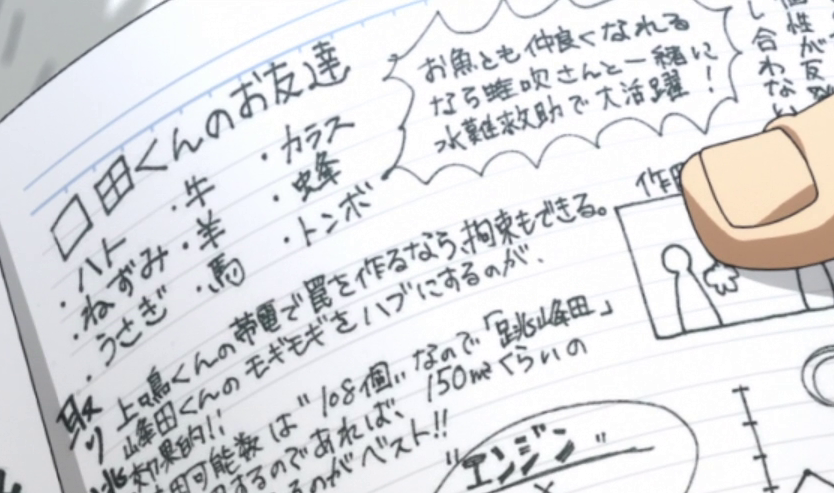 口田くんのお友達
・ハト
・ねずみ
・うさぎ
・牛
・羊
・馬
・カラス
・蜂
・トンボ
お魚とも仲良くなれる
なら蛙吹さんと一緒に
水難救助で大活躍！
個性が反
し合わない
作
上鳴くんの帯電で罠を作るなら、拘束もできる。
峰田くんのモギモギをハブにするのが、
効果的!!
可能数は"108個"なので「跳峰田」
するのであれば、150㎡くらいの
るのがベスト!!
"エンジン"